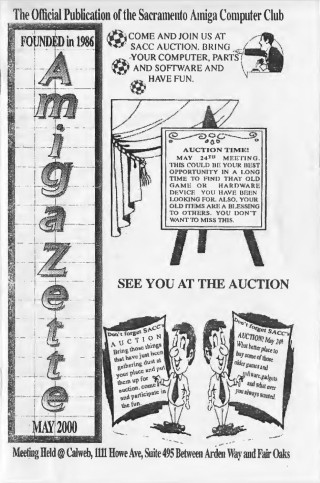 The Official Publication of the Sacramento Amiga Computer Club
FOUNDED in 1986
Amigazette
MAY 2000
COME AND JOIN US AT
SACC AUCTION. BRING
YOUR COMPUTER, PARTS
AND SOFTWARE AND
HAVE FUN.
AUCTION TIME!
MAY 24TH MEETING.
THIS COULD BE YOUR BEST
OPPORTUNITY IN A LONG
TIME TO FIND THAT OLD
GAME OR HARDWARE
DEVICE YOU HAVE BEEN
LOOKING FOR. ALSO, YOUR
OLD ITEMS ARE A BLESSING
TO OTHERS. YOU DON'T
WANT TO MISS THIS.
SEE YOU AT THE AUCTION
Don't Forget SACC
AUCTION
Bring those things
that have just been
gathering dust at
your place and put
them up for
auction. come
and participate in
the fun
Don't Forget SACC
AUCTION! May 24th
What better place to
buy some of those
older games and
software, gadgets
and what ever
you always wanted
Meeting Held @ Calweb, 1111 Howe Ave, Suite 495 Between Arden Way and Fair Oaks